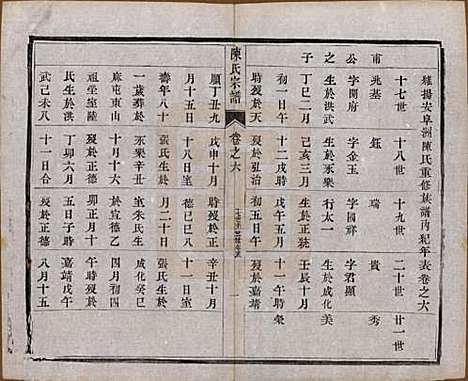 維揚安阜洲陳氏重修族譜丙紀年表卷之六
十七世 十八世 十九世 二十世 廿一世
甫 兆基 鈺 瑞 貴 秀
公 字開府 字金玉 字君顯
之 生於洪武 生於永樂 字國祥 生於成化 美
子 丁巳二月 己亥三月 生於正統 壬辰十月
初一日午 十二戌時 十一午時 榮
時歿於天 歿於弘治 初五日午 歿於嘉靖
陳氏宗譜 卷之六
順丁丑九 戊申十月 時歿於正 辛酉十月
月十五日 十八日室 德己巳八 十一日室
壽年八十 張氏生於 月二十日
一歲葬於 永樂辛丑 室朱氏生 成化癸巳
麻屯東山 十月十六 於宣德乙 四月初八
祖塋室陸 歿於正德 卯正月十 午時歿於
氏生於洪 丁卯六月 五日子時 嘉靖戊午
武己未八 十一日合 歿於正德 八月十五